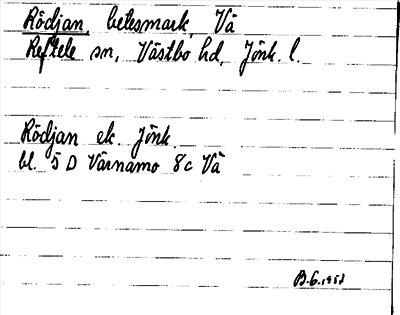 Rödjan, betesmark, Vä
Reftele sn, Västbo hd, Jönk. l.
Rödjan ek. Jönk.
bl. 5 D Värnamo 8c Vä
B.G. 1957